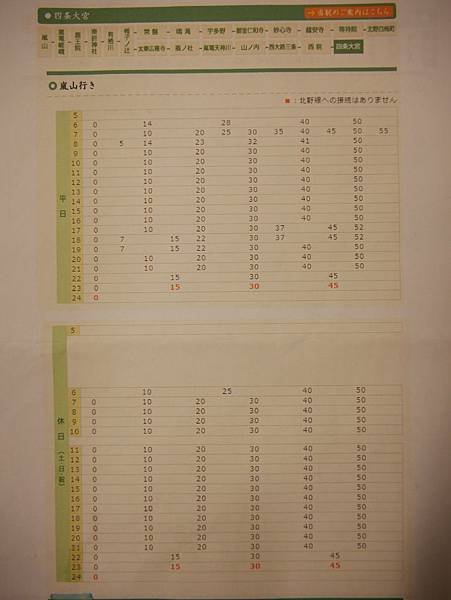 ● 四条大宮
→当駅のご案内はこちら
常盤 鳴滝 宇多野 御室仁和寺 妙心寺 龍安寺 等持院 北野白梅町
嵐山 嵐電嵯峨 鹿王院 車折神社 有栖川 帷子ノ辻
太秦広隆寺 蚕ノ社 嵐電天神川 山ノ内 西大路三条 西院 四条大宮
嵐山行き
■：北野線への接続はありません
平日
5
6 0 14 28 40 50
7 0 10 20 25 30 35 40 45 50 55
8 0 5 14 23 32 41 50
9 0 10 20 30 40 50
10 0 10 20 30 40 50
11 0 10 20 30 40 50
12 0 10 20 30 40 50
13 0 10 20 30 40 50
14 0 10 20 30 40 50
15 0 10 20 30 40 50
16 0 10 20 30 40 50
17 0 10 20 30 37 45 52
18 0 7 15 22 30 37 45 52
19 0 7 15 22 30 40 50
20 0 10 20 30 40 50
21 0 10 20 30 40 50
22 0 15 30 45
23 0 15 30 45
24 0
休日（土・日・祝）
5
6 10 25 40 50
7 0 10 20 30 40 50
8 0 10 20 30 40 50
9 0 10 20 30 40 50
10 0 10 20 30 40 50
11 0 10 20 30 40 50
12 0 10 20 30 40 50
13 0 10 20 30 40 50
14 0 10 20 30 40 50
15 0 10 20 30 40 50
16 0 10 20 30 40 50
17 0 10 20 30 40 50
18 0 10 20 30 40 50
19 0 10 20 30 40 50
20 0 10 20 30 40 50
21 0 10 20 30 40 50
22 0 15 30 45
23 0 15 30 45
24 0